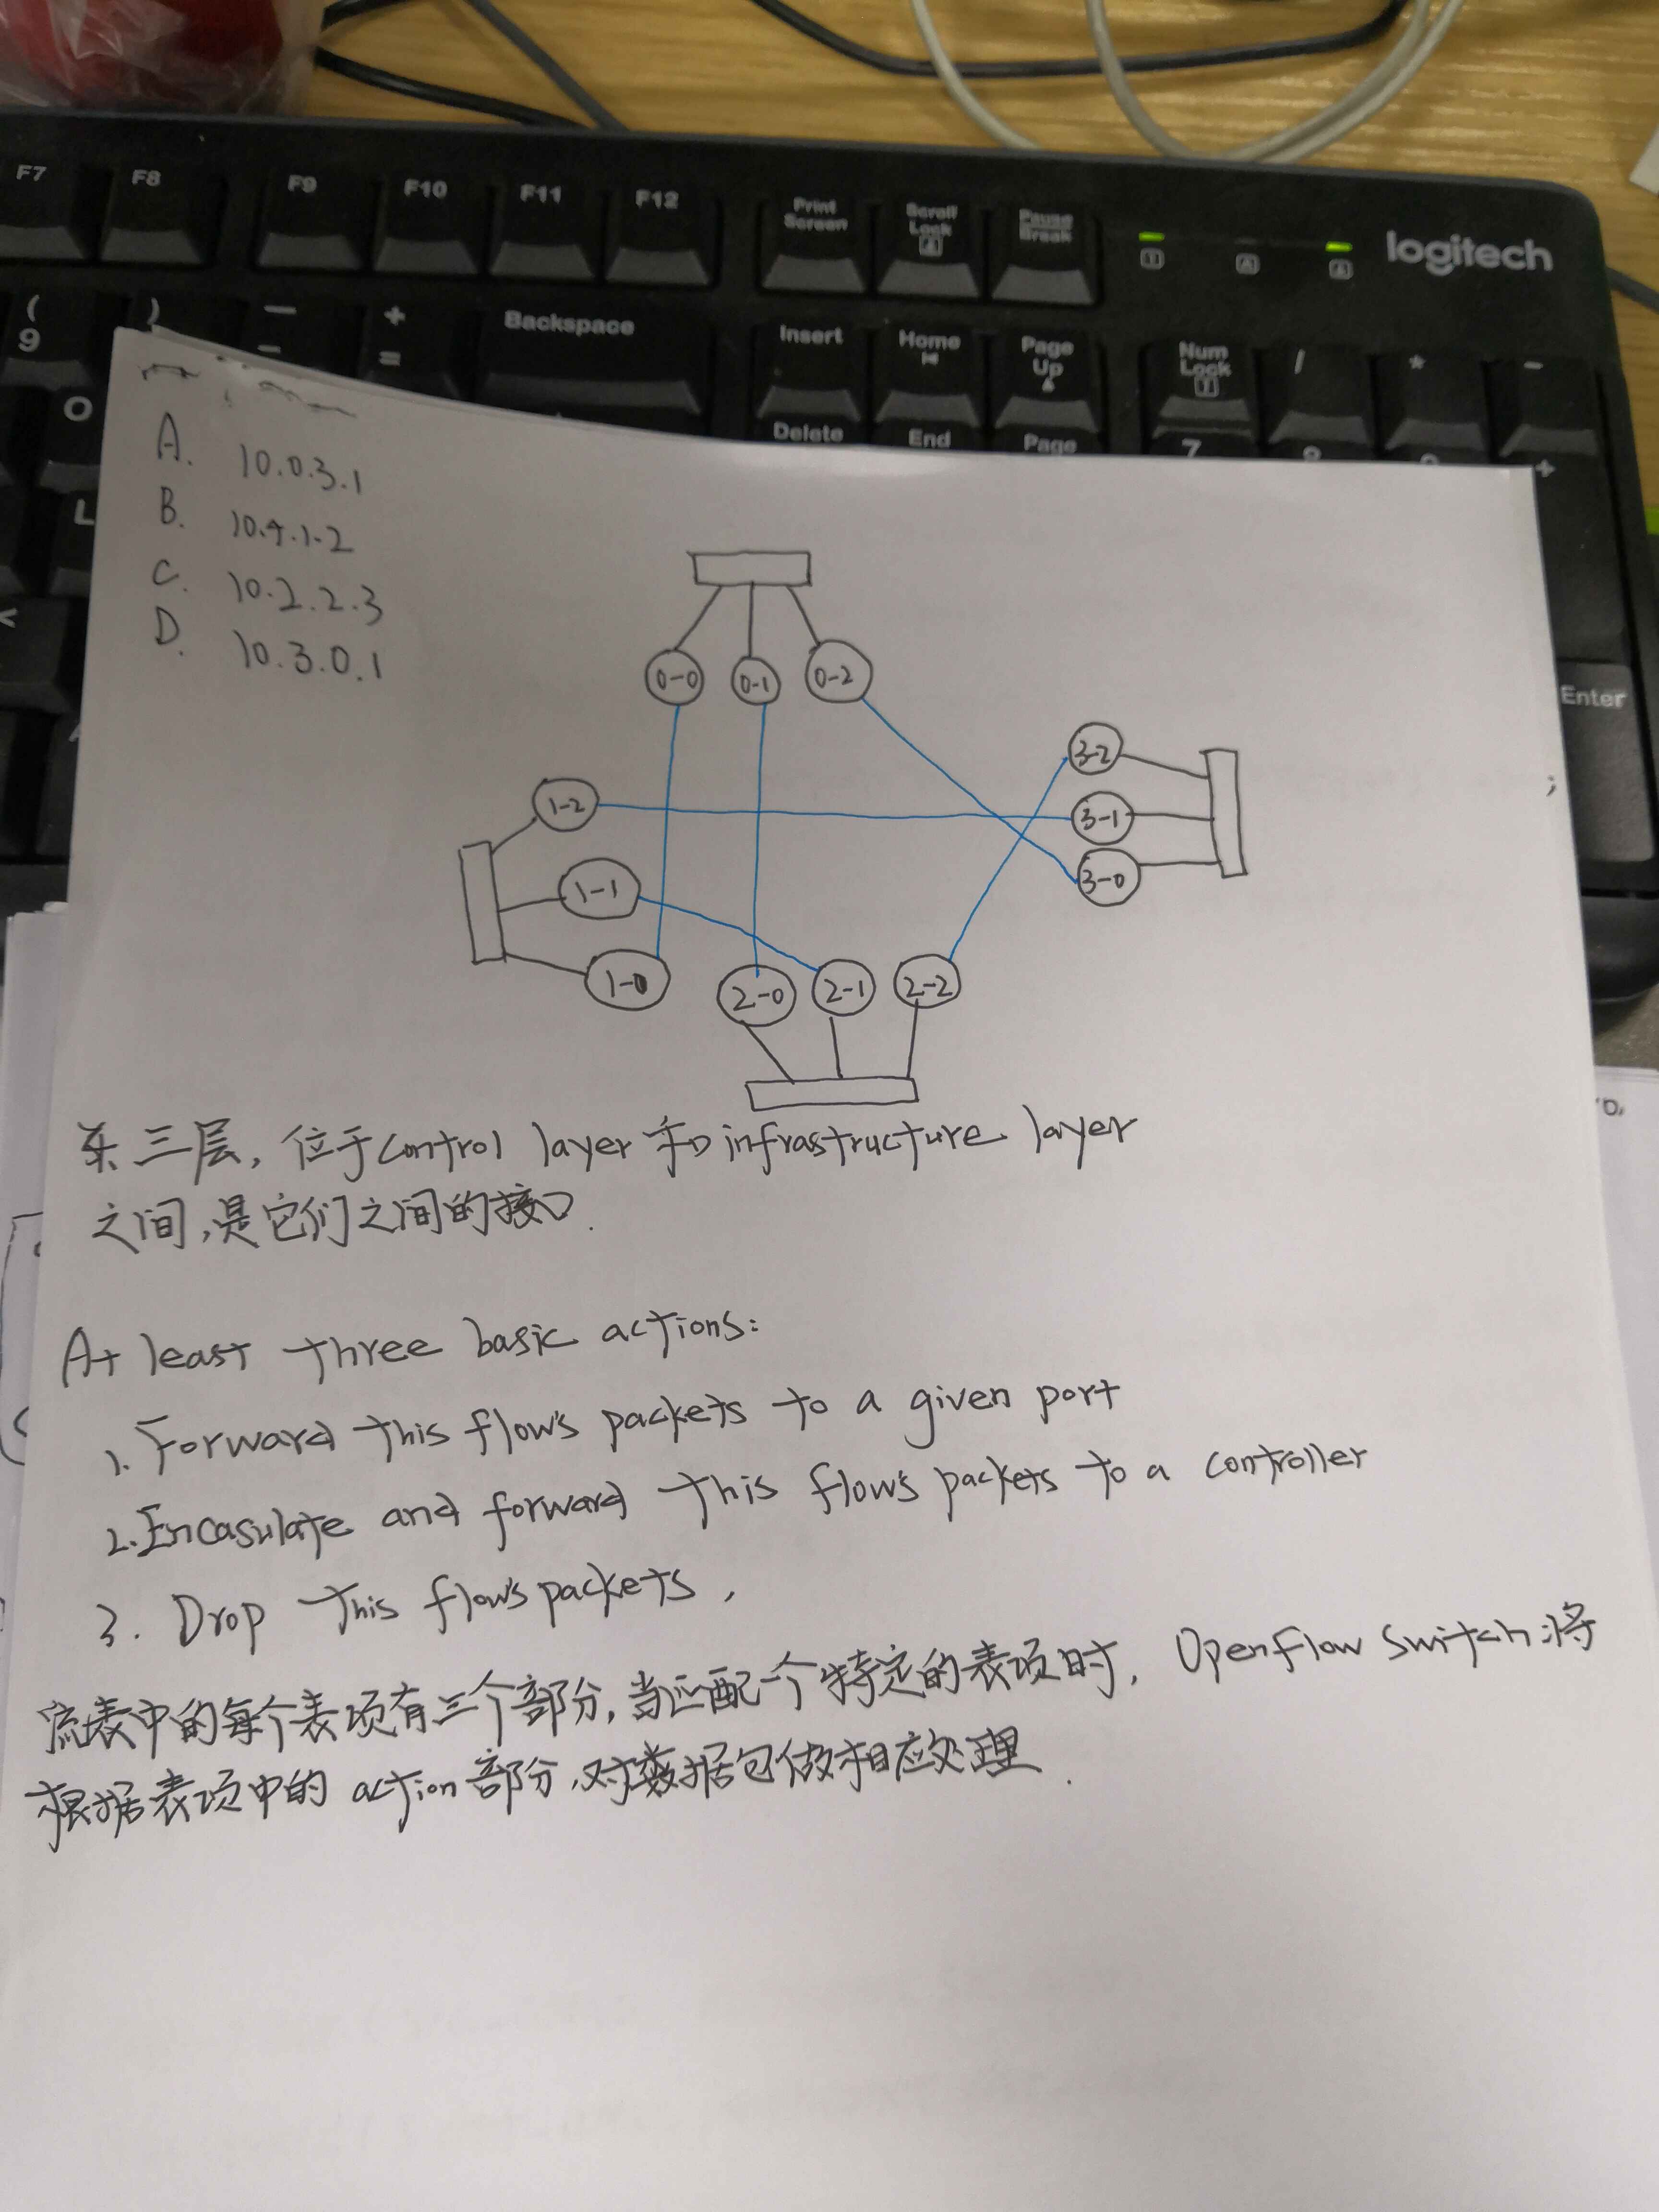 F7 F8 F9 F10 F11 F12 Print Screen Scroll Lock Pause Break
logitech
( 9 ) — - + = Backspace Insert Home Page Up Num Lock / * -
O Delete End Page 7 +
L
<
Enter
A. 10.0.3.1
B. 10.4.1.2
C. 10.2.2.3
D. 10.3.0.1
0-0 0-1 0-2
3-2
1-2 3-1
1-1 3-0
1-0 2-0 2-1 2-2
三层, 位于control layer 和 infrastructure layer
之间,是它们之间的接口.
At least three basic actions:
1. Forward this flow's packets to a given port
2. Encasulate and forward this flow's packets to a controller
3. Drop this flow's packets,
流表中的每个表项有三个部分,当匹配一个特定的表项时, Openflow Switch 将
根据表项中的 action 部分,对数据包做相应处理.